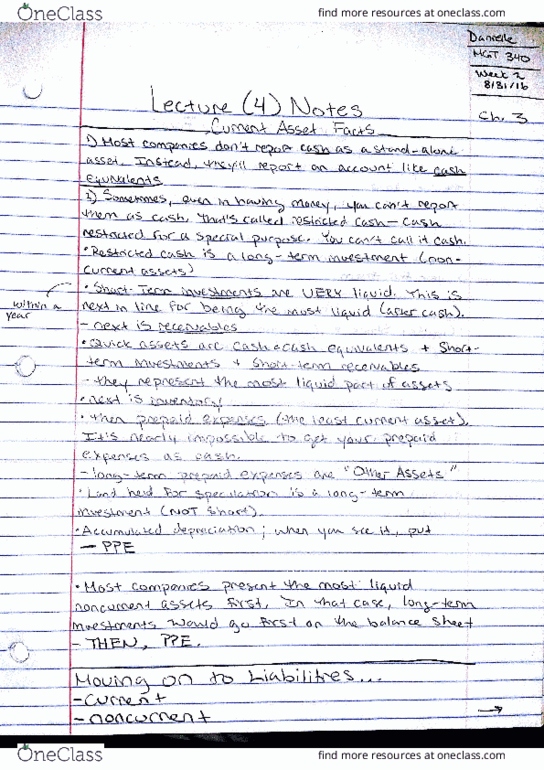 OneClass
find more resources at oneclass.com
Danielle
MGT 340
Week 2
8/31/16
Lecture (4) Notes
Ch. 3
Current Asset Facts
1) Most companies don't report cash as a stand-alone
asset. Instead, they'll report on account like cash
equivalents
2) Sometimes, even in having money, you can't report
them as cash. That's called restricted cash - Cash
restricted for a special purpose. You can't call it cash.
• Restricted cash is a long-term investment (non-
current assets)
• Short-Term investments are VERY liquid. This is
within a
year
next in line for being the most liquid (after cash).
- next is receivables
• Quick assets are cash + cash equivalents + Short-
term investments + short-term receivables
- they represent the most liquid part of assets
• next is inventory
• then prepaid expenses (the least current asset).
It's nearly impossible to get your prepaid
expenses as cash.
- long-term prepaid expenses are "Other Assets"
• Land held for speculation is a long-term
investment (NOT short).
• Accumulated depreciation; when you see it, put
- PPE
• Most companies present the most liquid
noncurrent assets first. In that case, long-term
investments would go first on the balance sheet
- THEN, PPE.
Moving on to Liabilities...
- current
- noncurrent
OneClass
find more resources at oneclass.com